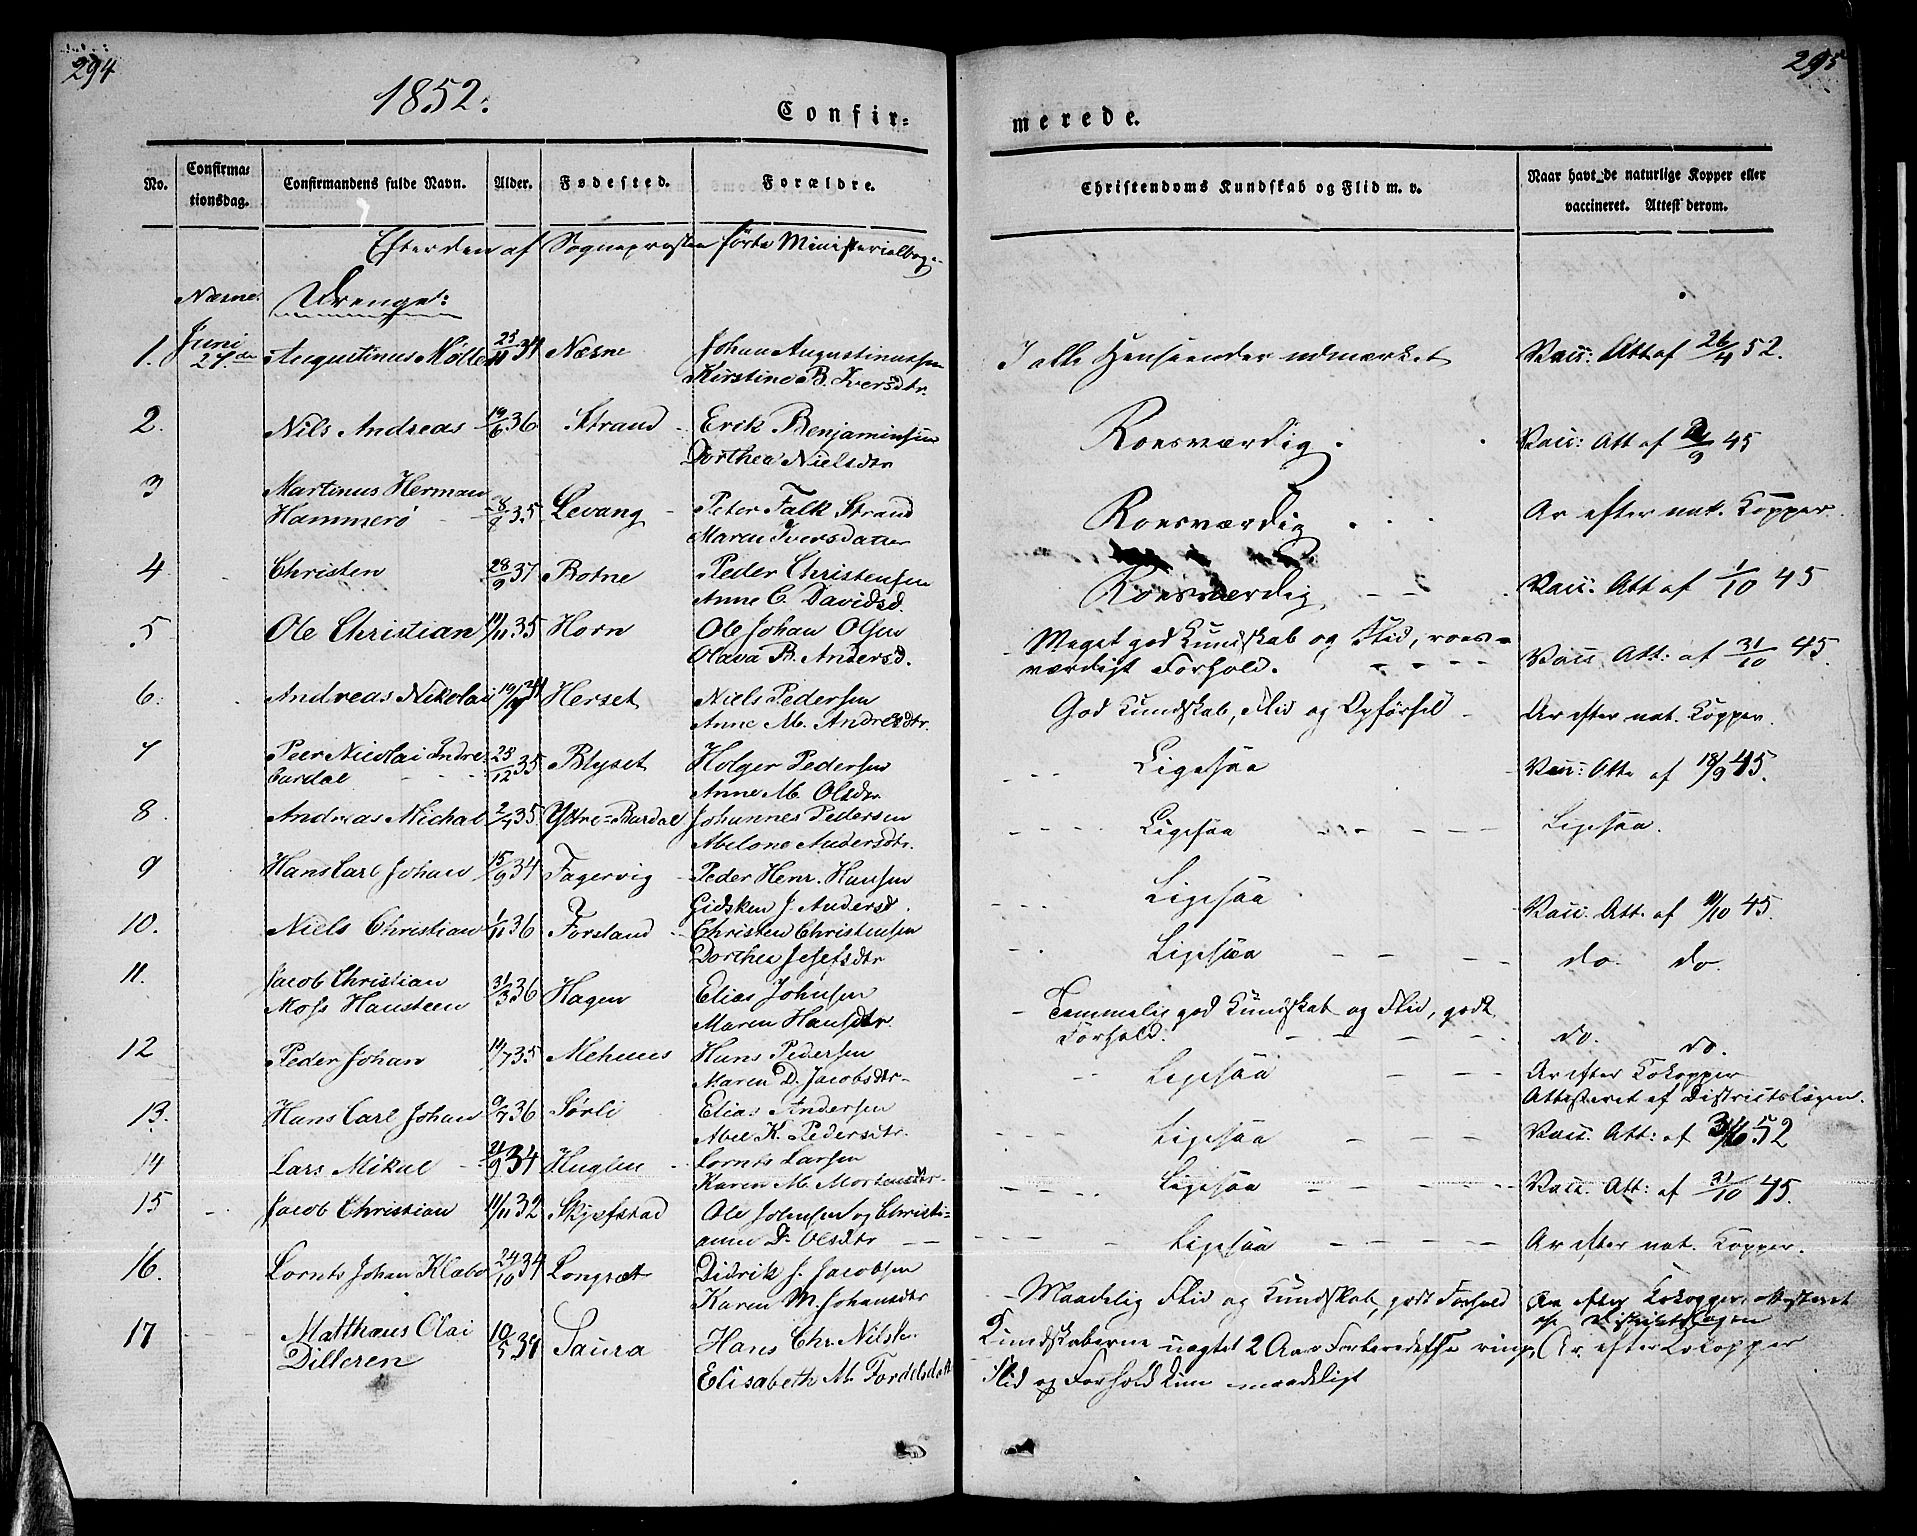 294
295
1852.
Confir=
merede.
No.
Confirma=
tionsdag.
Confirmandens fulde Navn.
Alder.
Fødested.
Forældre.
Christendoms Kundskab og Flid m. v.
Naar havt de naturlige Kopper eller
vaccineret. Attest derom.
Efter den af Sognepresten førte Ministerialbog.
Næsne.
Drenge:
1. Juni 27.de Augustinus Møller 34 Næsne Johan Augustinussen I alle Henseender udmærket Vacc: Att af 26/4 52.
Kirstine B. Iversdtr.
2. Nils Andreas 19/6 36 Strand Erik Benjaminsen Roesværdig. Vacc: Att af 45
Dorthea Nielsdtr
3 Martinus Herman
Hammerø 35 Levang Peter Falk Strand Roesværdig Ar efter nat. Kopper.
Maren Iversdatter
4 Christen 28/9 37 Botne Peder Christensen Roesværdig Vacc: Att af 1/10 45
Anne C. Davidsd.
5 Ole Christian 35 Horn Ole Johan Olsen Meget god Kundskab og Flid, roes=
Olava B. Andersd. værdigt Forhold. Vacc. Att: af 31/10 45.
6. Andreas Nikolai 34 Herset Niels Pedersen God Kundskab, Flid og Opførsel Ar efter nat. Kopper.
Anne M. Andresdtr.
7 Peer Nicolai Indre
bardal 23/12 35 Blyset Holger Pedersen Ligesaa Vacc: Att. af 18/9 45.
Anne M. Olsdtr
8. Andreas Michal 2/4 35 Yttre=Bardal Johannes Pedersen Ligesaa Ligesaa.
Abelone Andersdtr.
9 Hans Carl Johan 15/9 34 Fagervig Peder Henr. Hansen Ligesaa Vacc. Att. af 45.
Gidsken J. Andersd.
10. Niels Christian 1/11 36 Forsland Christen Christensen Ligesaa do. do.
Dorthea Josefsdtr
11. Jacob Christian
Moss Hansteen 31/3 36 Hagen Elias Johnsen Temmelig god Kundskab og Flid, godt
Maren Hansdtr. Forhold. do. do.
12 Peder Johan 35 Mehuus Hans Pedersen Ligesaa Ar efter Kokopper
Maren D. Jacobsdtr. Attesteret af Districtslægen.
13. Hans Carl Johan 9/7 36 Sørli Elias Andersen Ligesaa Vacc. Att: af 52
Abel K. Pedersdtr.
14 Lars Mikal 34 Huglen Lornts Larsen Ligesaa Vacc. Att: af 31/10 45.
Karen M. Mortensdtr.
15 Jacob Christian 32 Skjefstad Ole Johnsen og Christi=
anna D. Olsdtr Ligesaa Ar efter nat. Kopper.
16. Lornts Johan Klæbo 24/10 34 Longset Didrik J. Jacobsen Maadelig Flid og Kundskab, godt Forhold Ar efter Kokopper, attesteret
Karen M. Johansdtr af Districtslægen
17 Matthæus Olai
Dilleren 10/5 34 Saura Hans Chr. Nilsen Kundskaberne uagtet 2 Aars Forberedelse ringe, Ar. efter Kokopper
Elisabeth M. Flid og Forhold kun maadeligt